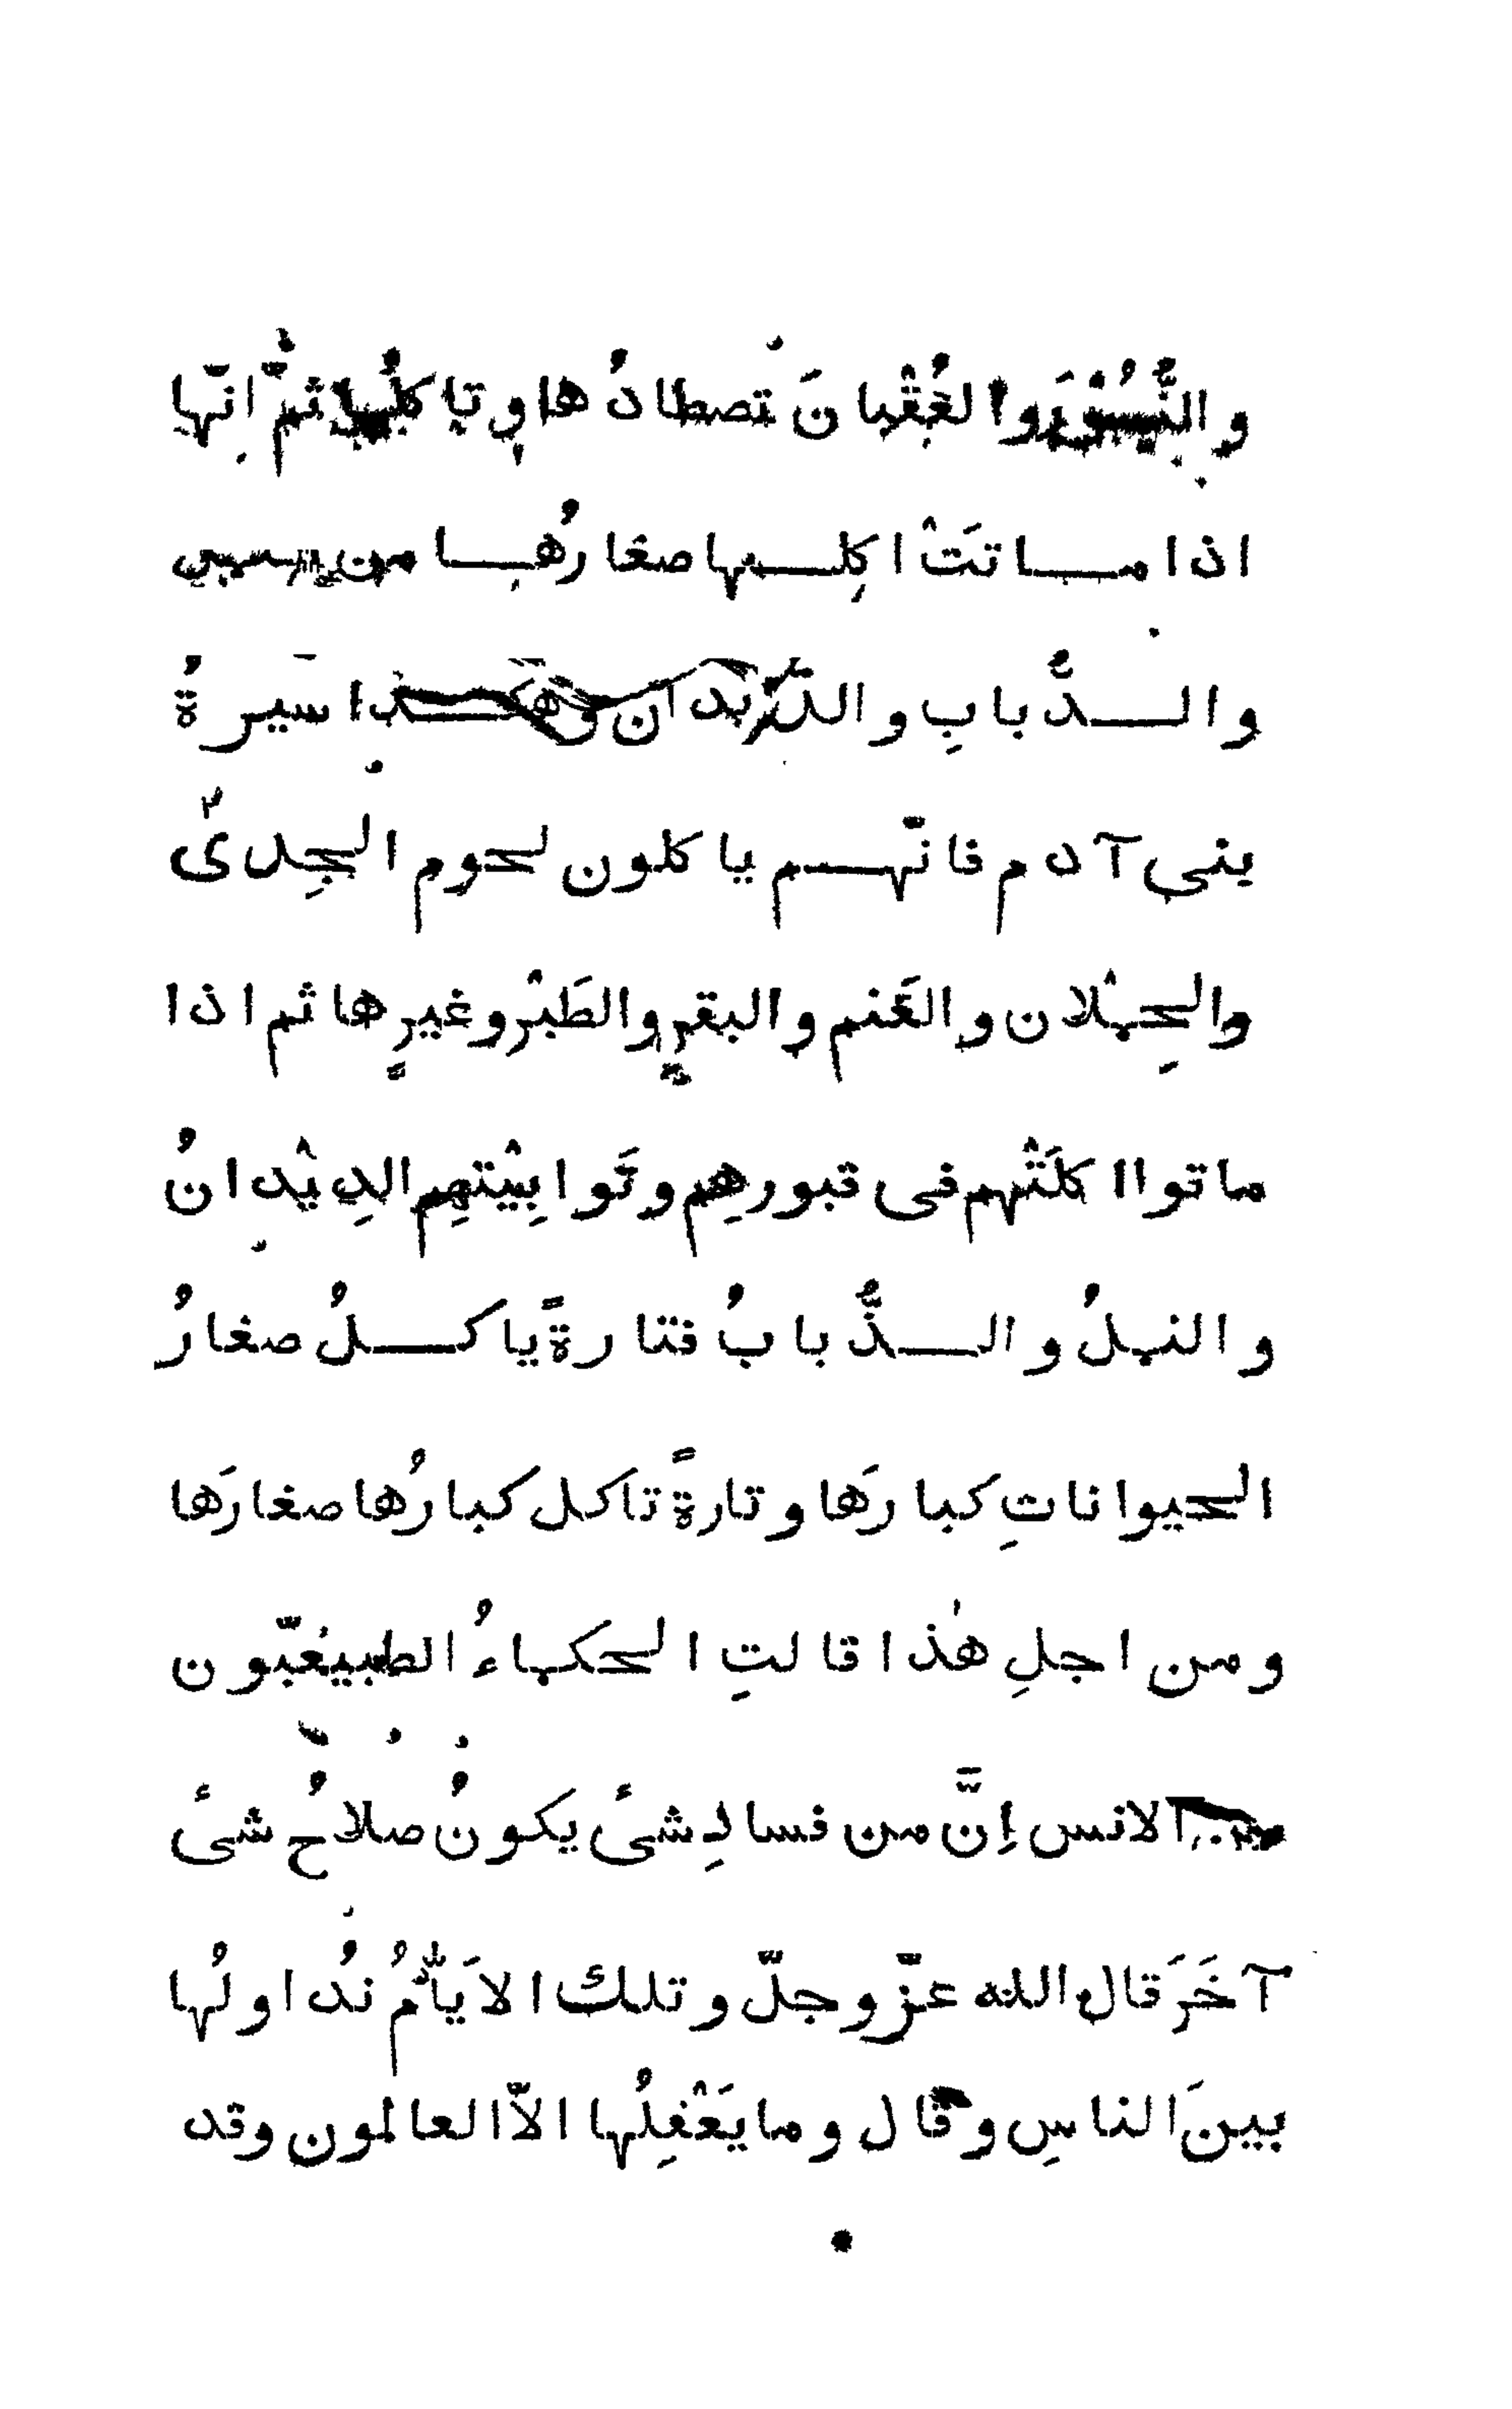 والنُّسُوْرَ والعُقْبانَ تصطادُها وتاكلُها ثمّ انّها
اذا ماتَتْ اكلِها صغارُها من
والذُّبابِ والدّيدان وهكذا سيرةُ
بنى آدم فانّهم ياكلون لحوم الجِدىْ
والحِمْلان والغَنم والبقرِ والطَيْر وغيرِها ثم اذا
ماتوا اكلَتْهم فى قبورِهِم وتَوابِيْتهِم الدِيْدانُ
والنملُ والذُّبابُ فتارةً ياكلُ صغارُ
الحيواناتِ كبارَها وتارةً تاكل كبارُها صغارَها
ومن اجلِ هٰذا قالتِ الحكماءُ الطبيعيّون
من الانس اِنَّ من فسادِ شىٔ يكونُ صلاحُ شىٔ
آخَرَ قال الله عزّ وجلّ وتلك الاَيّامُ نُداولُها
بينَ الناسِ وقال وما يَعْقِلُها الاّ العالمون وقد